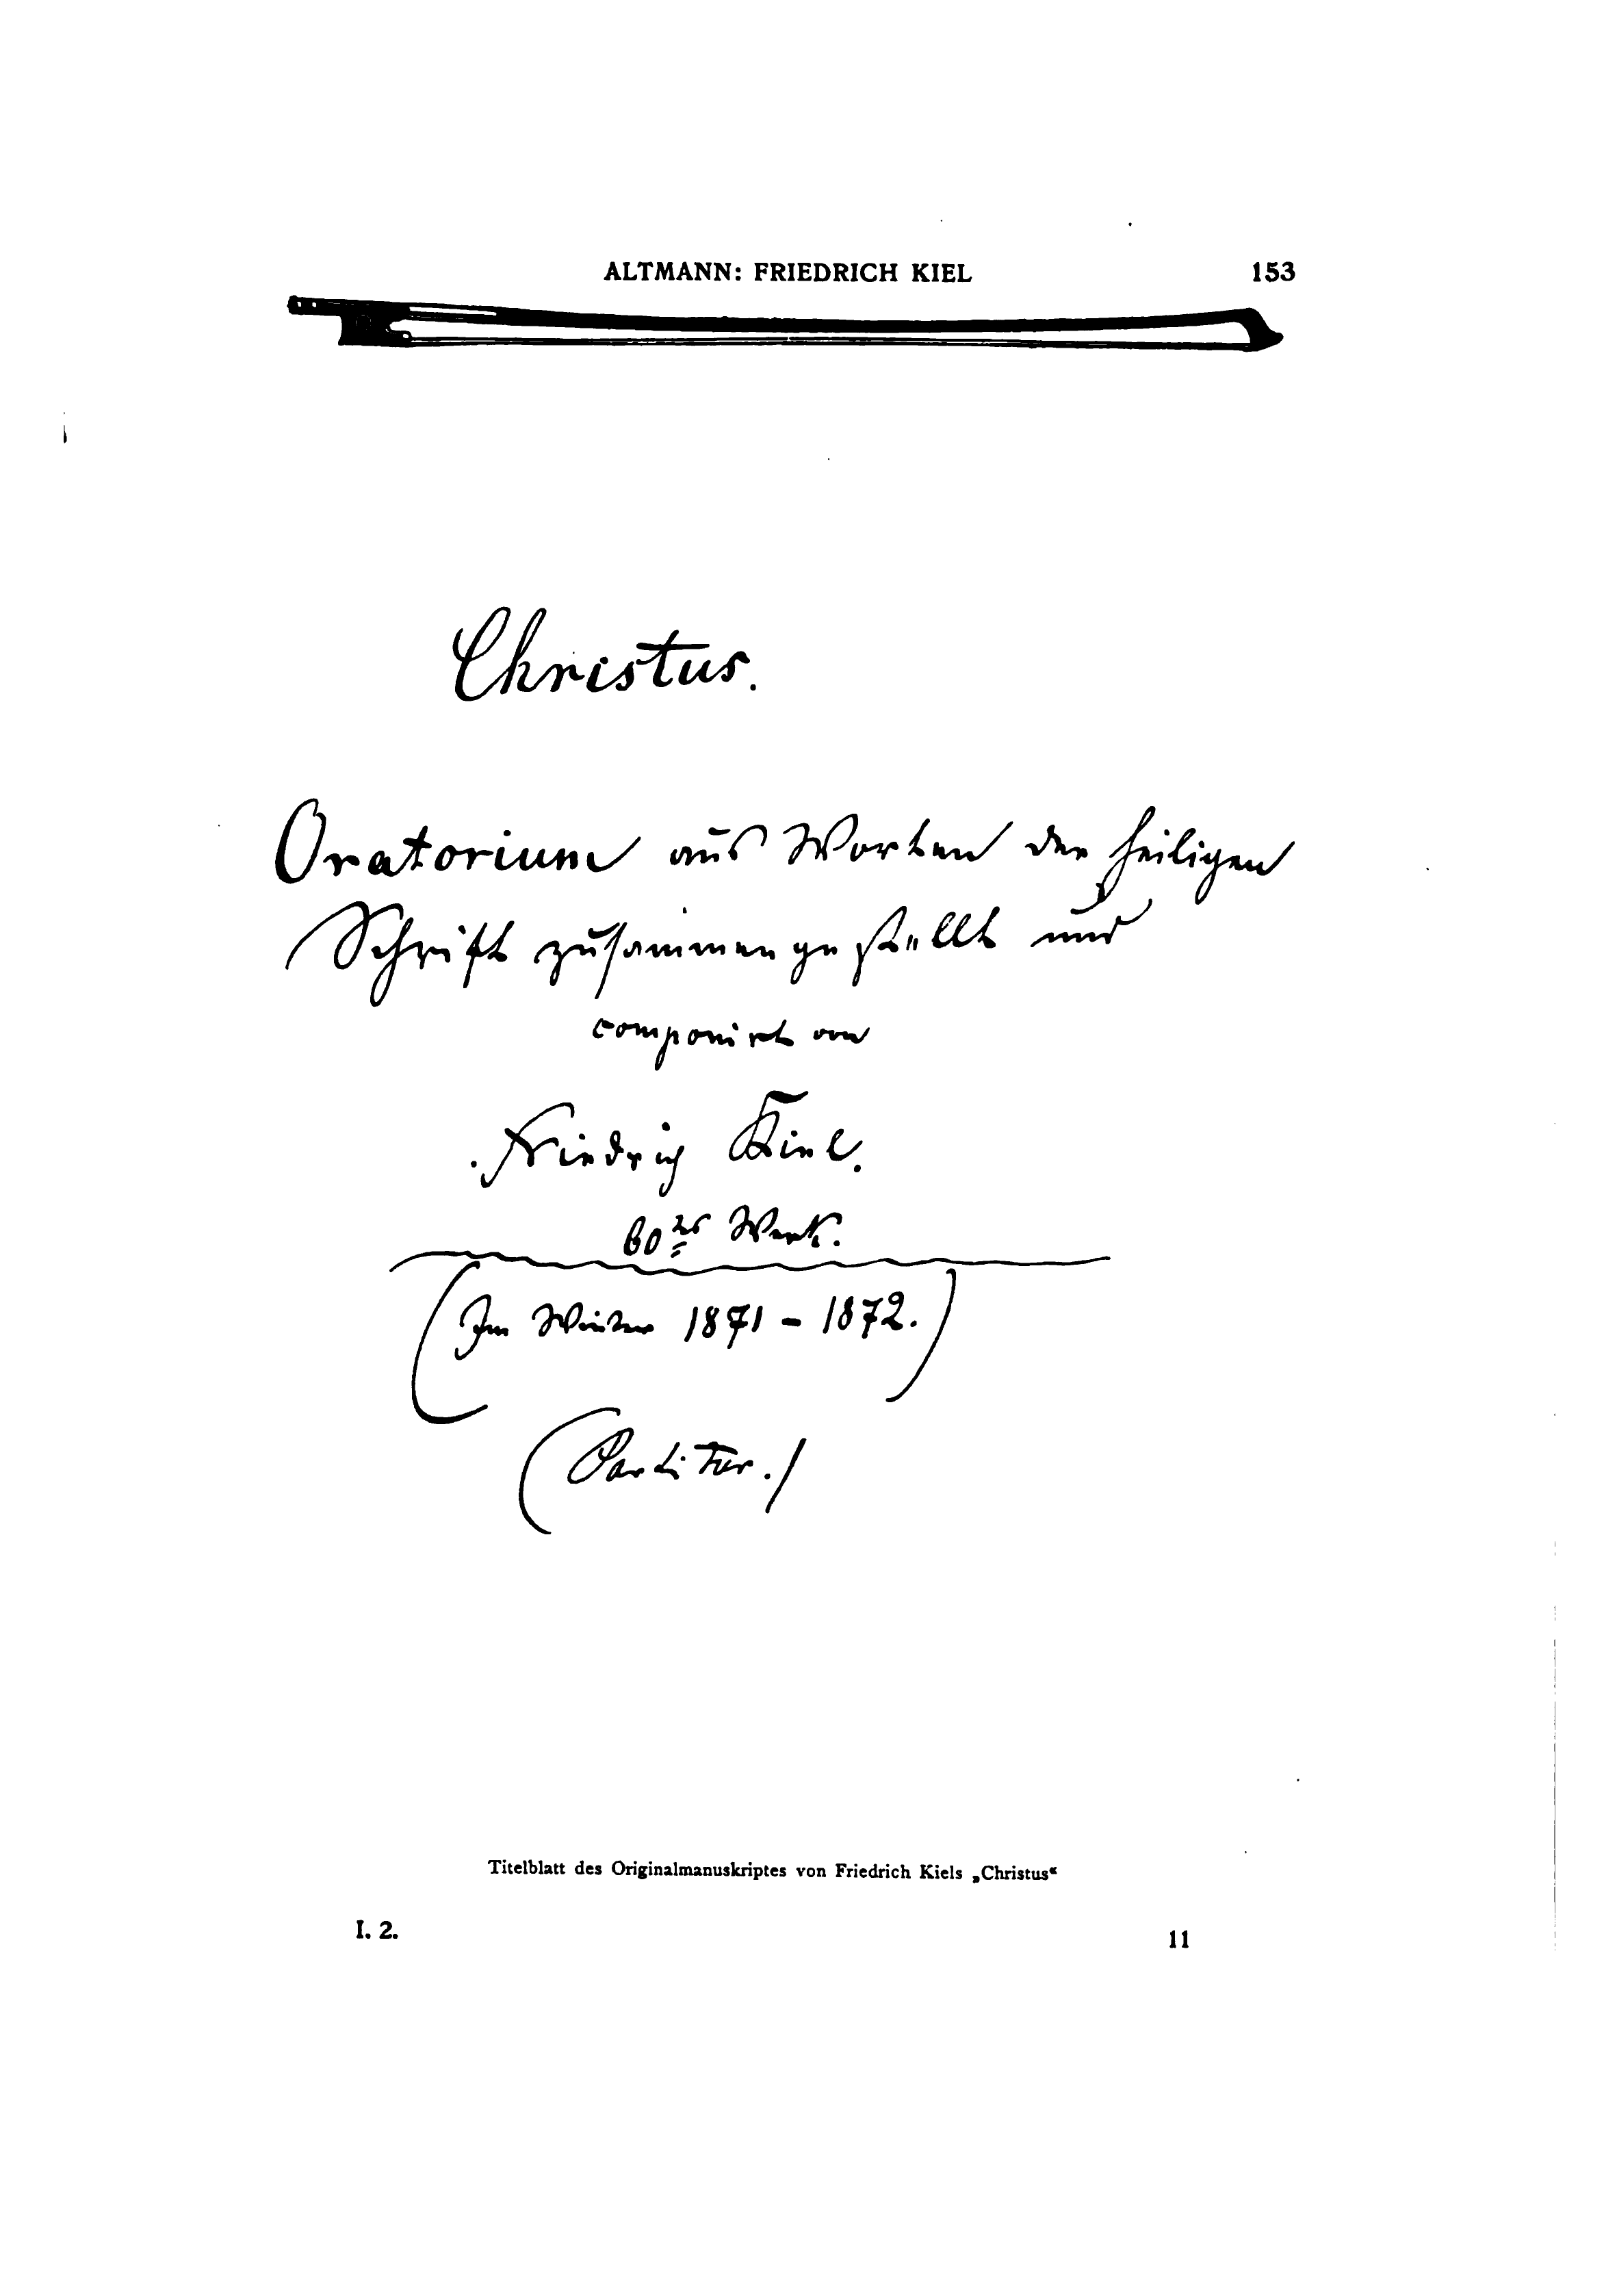 ALTMANN: FRIEDRICH KIEL 153
Christus.
Oratorium aus Worten der heiligen
Schrift zusammengestellt und
componirt von
Friedrich Kiel.
60tes Werk.
(Im Winter 1871 - 1872.)
(Partitur.)
Titelblatt des Originalmanuskriptes von Friedrich Kiels „Christus“
I. 2. 11